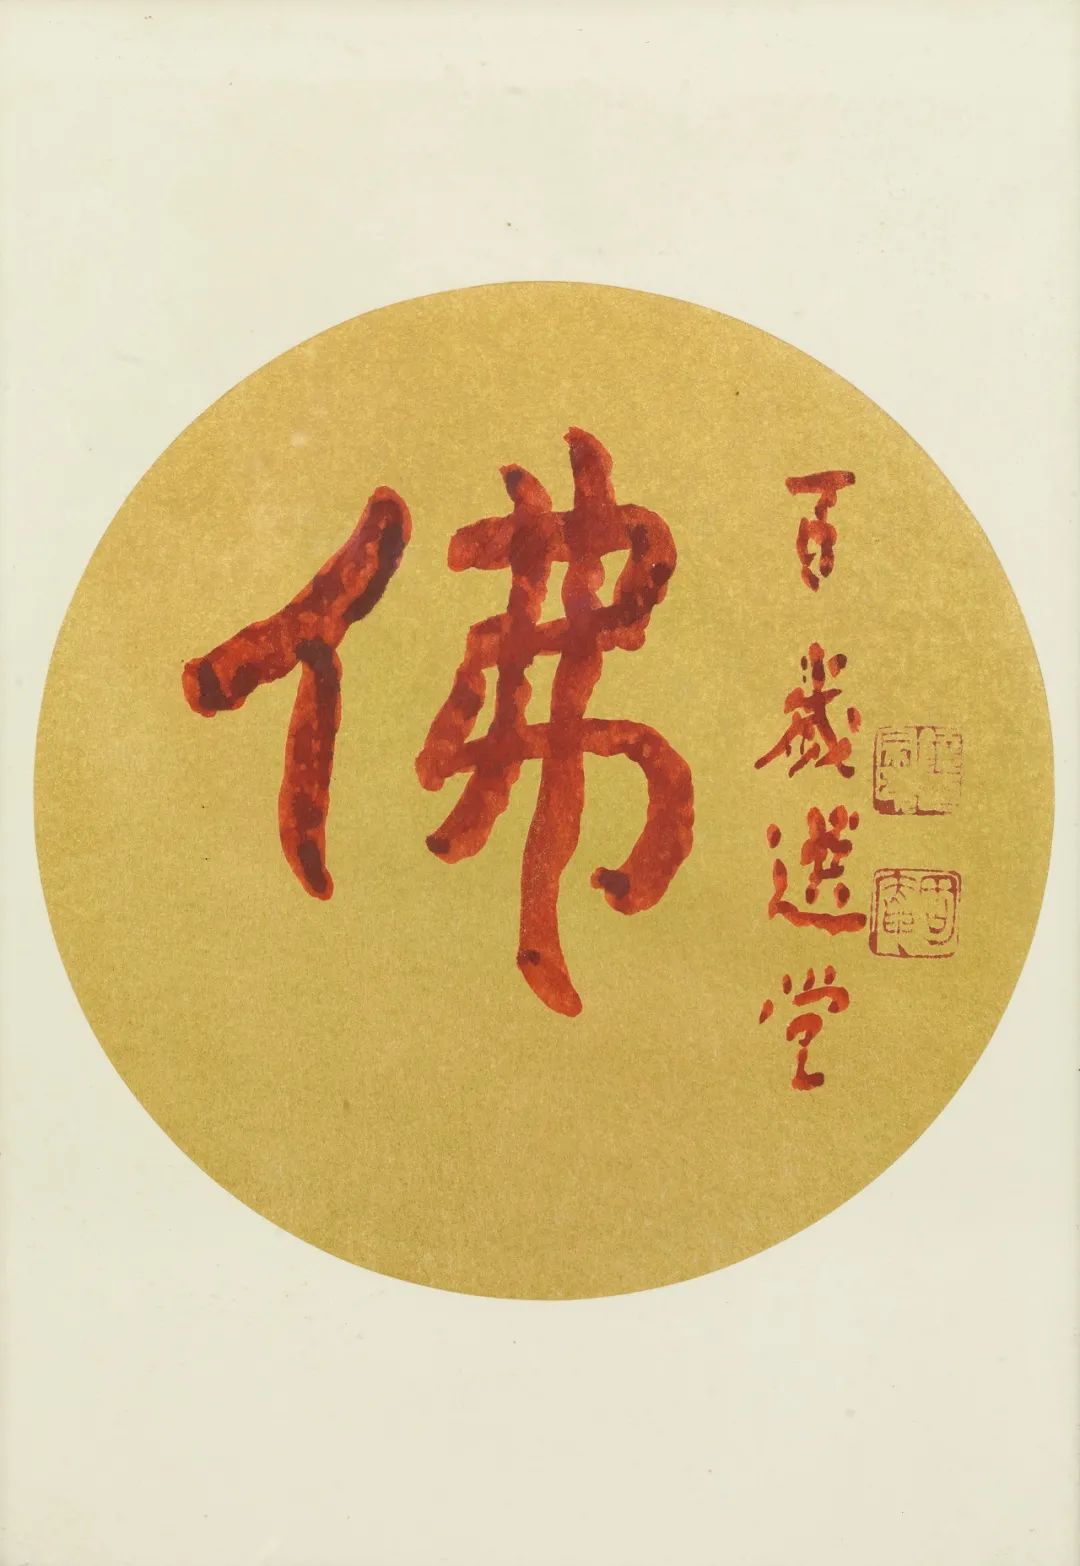 佛
百歲選堂